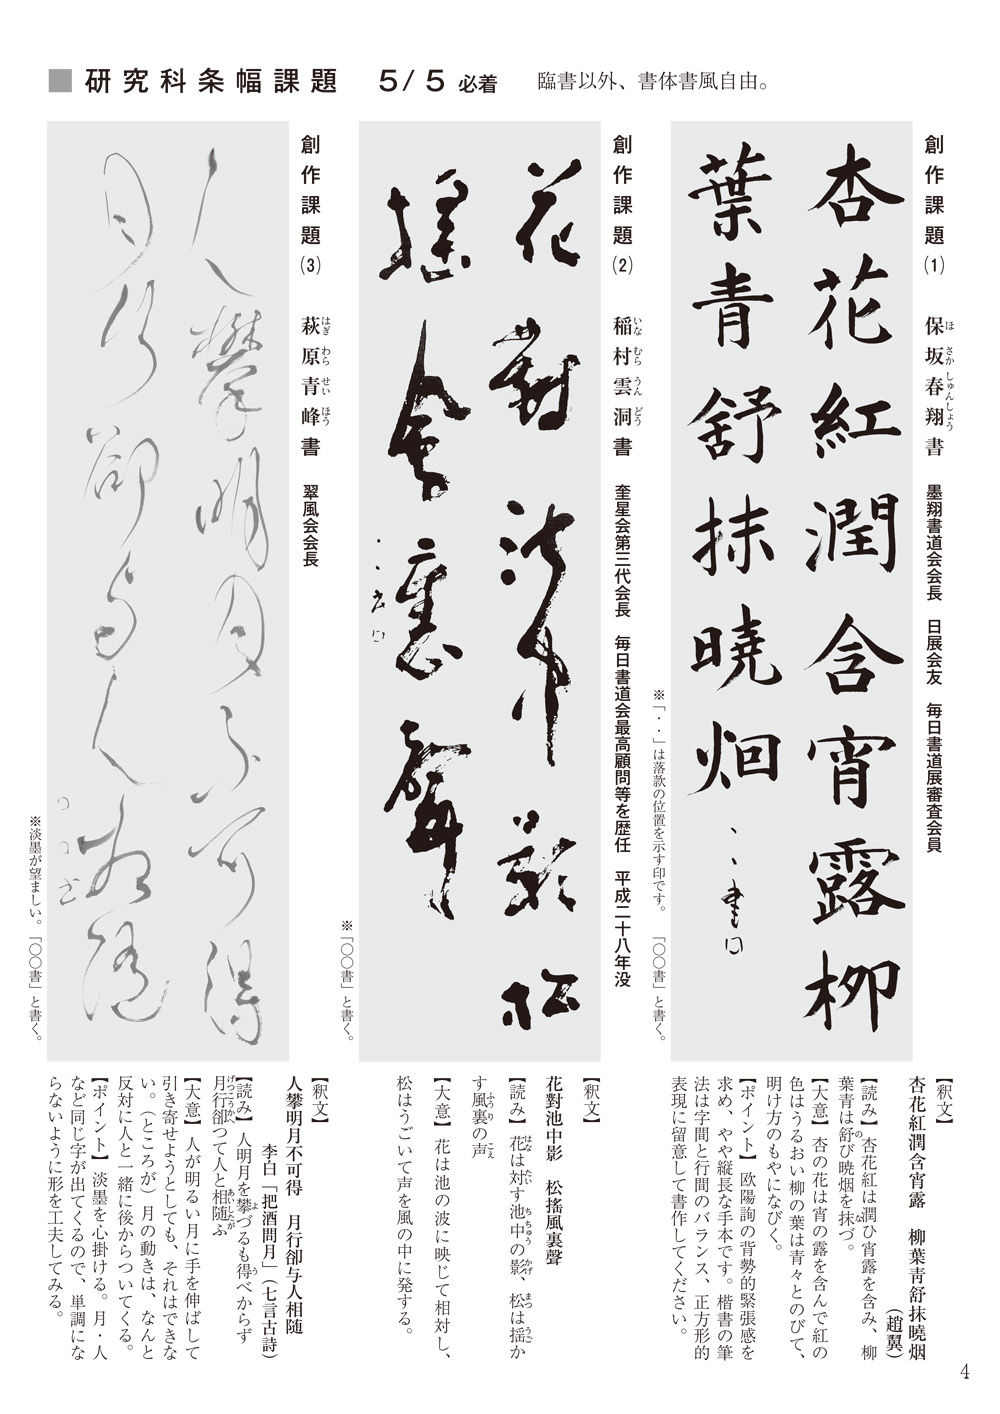 ■ 研究科条幅課題 5/5 必着 臨書以外、書体書風自由。
創作課題(1) 保坂春翔書 墨翔書道会会長 日展会友 毎日書道展審査会員
ほ さか しゅんしょう
杏花紅潤含宵露柳
葉青舒抹曉烟
、、書
※「・・」は落款の位置を示す印です。「〇〇書」と書く。
【釈文】
杏花紅潤含宵露 柳葉青舒抹曉烟
(趙翼)
【読み】杏花紅は潤ひ宵露を含み、柳
葉青は舒び暁烟を抹づ。
の な
【大意】杏の花は宵の露を含んで紅の
色はうるおい柳の葉は青々とのびて、
明け方のもやになびく。
【ポイント】欧陽詢の背勢的緊張感を
求め、やや縦長な手本です。楷書の筆
法は字間と行間のバランス、正方形的
表現に留意して書作してください。
創作課題(2) 稲村雲洞書 奎星会第三代会長 毎日書道会最高顧問等を歴任 平成二十八年没
いな むら うん どう
花對池中影松
搖風裏聲
・・書
※「〇〇書」と書く。
【釈文】
花對池中影 松搖風裏聲
【読み】花は対す池中の影、松は揺か
はな たい ちちゅう かげ まつ うご
す風裏の声
ふうり こえ
【大意】花は池の波に映じて相対し、
松はうごいて声を風の中に発する。
創作課題(3) 萩原青峰書 翠風会会長
はぎ わら せい ほう
人攀明月不可得
月行卻与人相随
〇〇書
※淡墨が望ましい。「〇〇書」と書く。
【釈文】
人攀明月不可得 月行卻与人相随
李白「把酒問月」(七言古詩)
【読み】人明月を攀づるも得べからず
よ う
月行卻つて人と相随ふ
げつこうかへ あいしたが
【大意】人が明るい月に手を伸ばして
引き寄せようとしても、それはできな
い。(ところが)月の動きは、なんと
反対に人と一緒に後からついてくる。
【ポイント】淡墨を心掛ける。月・人
など同じ字が出てくるので、単調にな
らないように形を工夫してみる。
4